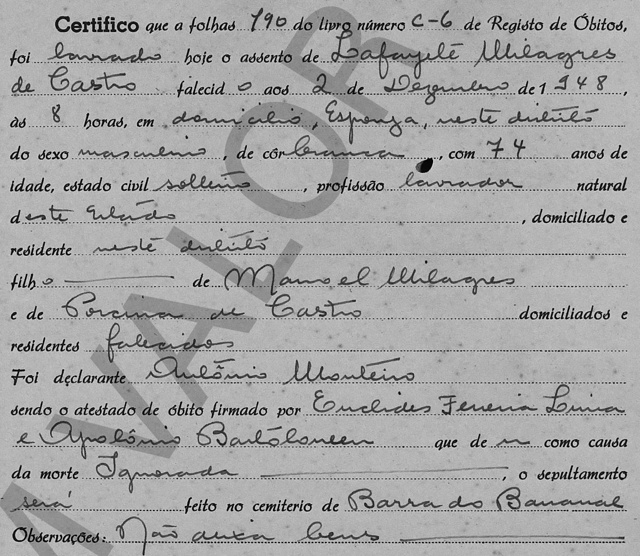 Certifico que a folhas 190 do livro número C-6 de Registo de Óbitos,
foi lavrado hoje o assento de Lafayete Milagres
de Castro falecido aos 2 de Dezembro de 1948,
às 8 horas, em domicilio, Esponja, neste distrito
do sexo masculino, de côr branca, com 74 anos de
idade, estado civil solteiro, profissão lavrador natural
deste Estado, domiciliado e
residente neste distrito
filho de Manoel Milagres
e de Porcina de Castro domiciliados e
residentes falecidos
Foi declarante Antônio Monteiro
sendo o atestado de óbito firmado por Euclides Ferreira Lima
e Apolônio que deu como causa
da morte Ignorada, o sepultamento
será feito no cemiterio de Barra do Bananal
Observações: Não deixa bens
VALOR